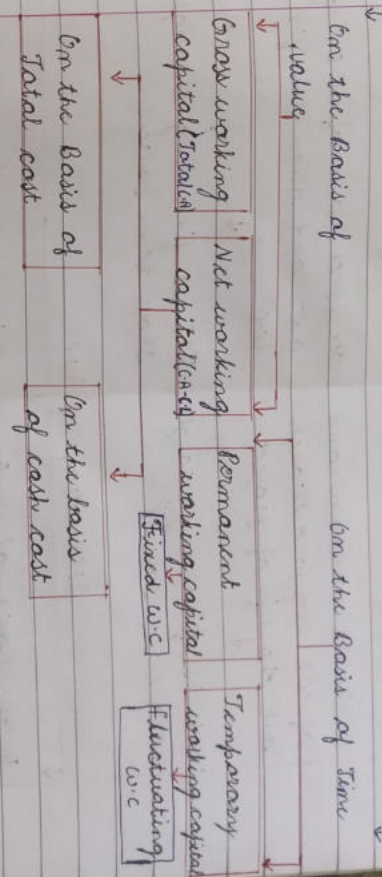 On the Basis of
value
On the Basis of Time
Gross working
capital (Total CA)
Net working
capital (CA-CL)
Permanent
working capital
Temporary
working capital
Fixed w.c
Fluctuating
w.c
On the Basis of
Total cost
On the basis
of cash cost